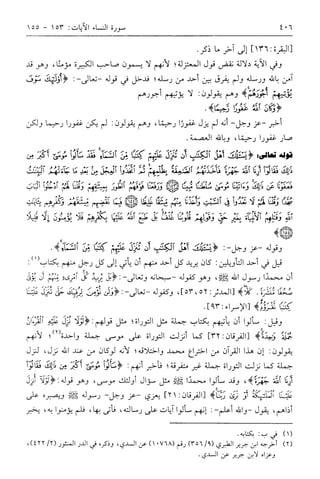 ٤٠٦ سورة النساء الآيات: ١٥٣ - ١٥٥
[البقرة: ١٣٦] إلى آخر ما ذكر.
وفي الآية دلالة نقض قول المعتزلة؛ لأنهم لا يسمون صاحب الكبيرة مؤمنًا، وهو قد
آمن بالله ورسله ولم يفرق بين أحد من رسله؛ فدخل في قوله -تعالى-: ﴿أُوْلَٰٓئِكَ سَوۡفَ
يُؤۡتِيهِمۡ أُجُورَهُمۡ﴾ وهم يقولون: لا يؤتيهم أجورهم
﴿وَكَانَ ٱللَّهُ غَفُورٗا رَّحِيمٗا﴾.
أخبر -عز وجل- أنه لم يزل غفورًا رحيمًا، وهم يقولون: لم يكن غفورا رحيما ولكن
صار غفورا رحيمًا، وبالله العصمة.
قوله تعالى: ﴿يَسۡـَٔلُكَ أَهۡلُ ٱلۡكِتَٰبِ أَن تُنَزِّلَ عَلَيۡهِمۡ كِتَٰبٗا مِّنَ ٱلسَّمَآءِۚ فَقَدۡ سَأَلُواْ مُوسَىٰٓ أَكۡبَرَ مِن
ذَٰلِكَ فَقَالُوٓاْ أَرِنَا ٱللَّهَ جَهۡرَةٗ فَأَخَذَتۡهُمُ ٱلصَّٰعِقَةُ بِظُلۡمِهِمۡۚ ثُمَّ ٱتَّخَذُواْ ٱلۡعِجۡلَ مِنۢ بَعۡدِ مَا جَآءَتۡهُمُ ٱلۡبَيِّنَٰتُ
فَعَفَوۡنَا عَن ذَٰلِكَۚ وَءَاتَيۡنَا مُوسَىٰ سُلۡطَٰنٗا مُّبِينٗا ۝١٥٣ وَرَفَعۡنَا فَوۡقَهُمُ ٱلطُّورَ بِمِيثَٰقِهِمۡ وَقُلۡنَا لَهُمُ ٱدۡخُلُواْ ٱلۡبَابَ
سُجَّدٗا وَقُلۡنَا لَهُمۡ لَا تَعۡدُواْ فِي ٱلسَّبۡتِ وَأَخَذۡنَا مِنۡهُم مِّيثَٰقًا غَلِيظٗا ۝١٥٤ فَبِمَا نَقۡضِهِم مِّيثَٰقَهُمۡ وَكُفۡرِهِم بِـَٔايَٰتِ
ٱللَّهِ وَقَتۡلِهِمُ ٱلۡأَنۢبِيَآءَ بِغَيۡرِ حَقّٖ وَقَوۡلِهِمۡ قُلُوبُنَا غُلۡفُۢۚ بَلۡ طَبَعَ ٱللَّهُ عَلَيۡهَا بِكُفۡرِهِمۡ فَلَا يُؤۡمِنُونَ إِلَّا قَلِيلٗا
۝١٥٥﴾
وقوله -عز وجل-: ﴿يَسۡـَٔلُكَ أَهۡلُ ٱلۡكِتَٰبِ أَن تُنَزِّلَ عَلَيۡهِمۡ كِتَٰبٗا مِّنَ ٱلسَّمَآءِ﴾.
قيل في أحد التأويلين: كان يريد كل أحد منهم أن يأتي إلى كل رجل منهم بكتاب(١):
أن محمدًا رسول الله ﷺ، وهو كقوله -سبحانه وتعالى-: ﴿بَلۡ يُرِيدُ كُلُّ ٱمۡرِيٕٖ مِّنۡهُمۡ أَن يُؤۡتَىٰ
صُحُفٗا مُّنَشَّرَةٗ﴾. كـلا [المدثر: ٥٢، ٥٣]، وكقوله -تعالى-: ﴿وَلَن نُّؤۡمِنَ لِرُقِيِّكَ حَتَّىٰ تُنَزِّلَ عَلَيۡنَا
كِتَٰبٗا نَّقۡرَؤُهُۥ﴾ [الإسراء: ٩٣].
وقيل: سألوا أن يأتيهم بكتاب جملة مثل التوراة؛ مثل قولهم: ﴿لَوۡلَا نُزِّلَ عَلَيۡهِ ٱلۡقُرۡءَانُ
جُمۡلَةٗ وَٰحِدَةٗ﴾ [الفرقان: ٣٢] كما أنزلت التوراة على موسى جملة واحدة(٢) لأنهم
يقولون: إن هذا القرآن من اختراع محمد واختلاقه؛ لأنه لوكان من عند الله نزل، لنزل
جملة كما نزلت التوراة جملة غير متفرقة؛ فأخبر أنهم: ﴿سَأَلُواْ مُوسَىٰٓ أَكۡبَرَ مِن ذَٰلِكَ فَقَالُوٓاْ
أَرِنَا ٱللَّهَ جَهۡرَةٗ﴾، وقد سألوا محمدًا ﷺ مثل سؤال أولئك موسى، وهو قوله: ﴿لَوۡلَآ أُنزِلَ
عَلَيۡنَا ٱلۡمَلَٰٓئِكَةُ أَوۡ نَرَىٰ رَبَّنَا﴾ [الفرقان: ٢١] يعزي -عز وجل- رسوله ﷺ ويصبره على
أذاهم، يقول -والله أعلم-: إنهم سألوا آيات على رسالته، فأتى بها، فلم يؤمنوا به، يخبر
(١) في ب: بكتابه.
(٢) أخرجه ابن جرير الطبري (٣٥٦/٩) رقم (١٠٧٦٨) عن السدي، وذكره في الدر المنثور (٤٢٢/٢)،
وعزاه لابن جرير عن السدي.